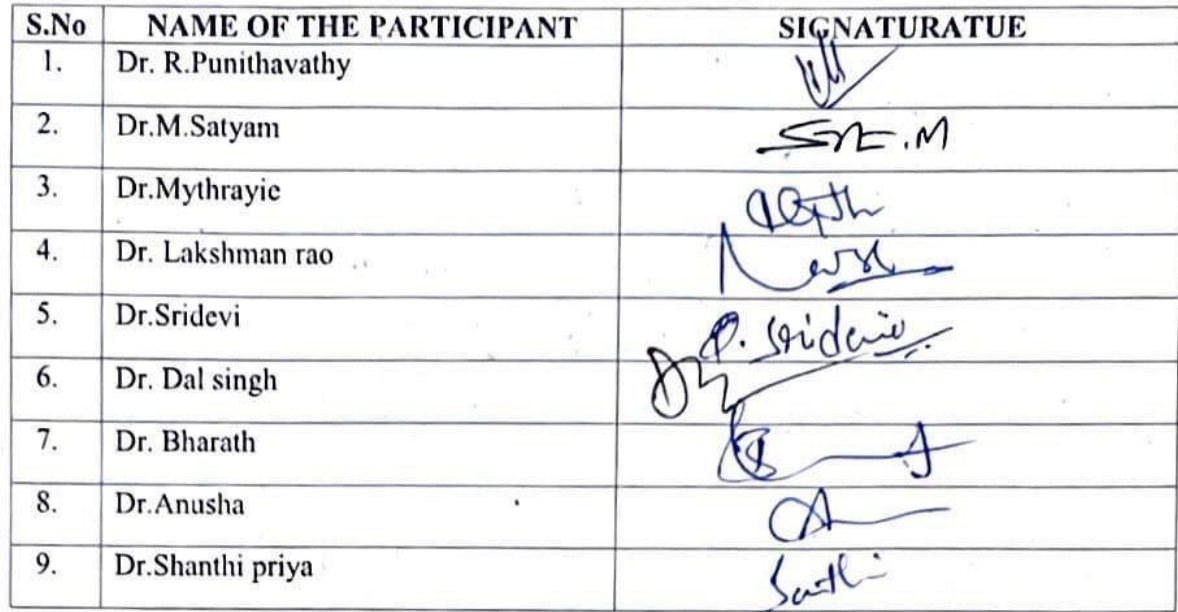 S.No NAME OF THE PARTICIPANT SIGNATURATUE
1. Dr. R.Punithavathy
2. Dr.M.Satyam
3. Dr.Mythrayie
4. Dr. Lakshman rao
5. Dr.Sridevi P. Sridevi
6. Dr. Dal singh
7. Dr. Bharath
8. Dr.Anusha
9. Dr.Shanthi priya